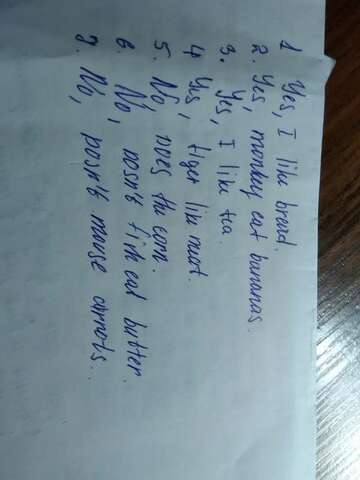 1 Yes, I like bread.
2. Yes, monkey eat bananas.
3. Yes, I like tea.
4 Yes, tiger like meat.
5. No, does the corn.
6. No, dosn't fish eat butter.
7. No, dosn't mouse carrots.